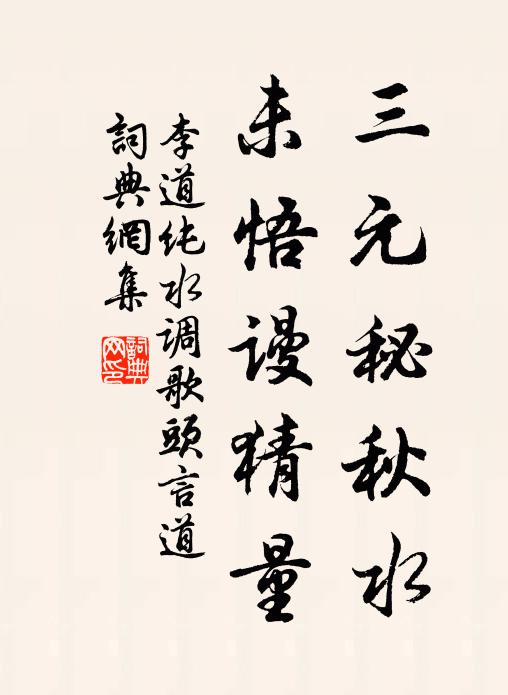 三元秘秋水
未悟謾猜量
李道纯水调歌頭言道
詞典網集
詞典网印